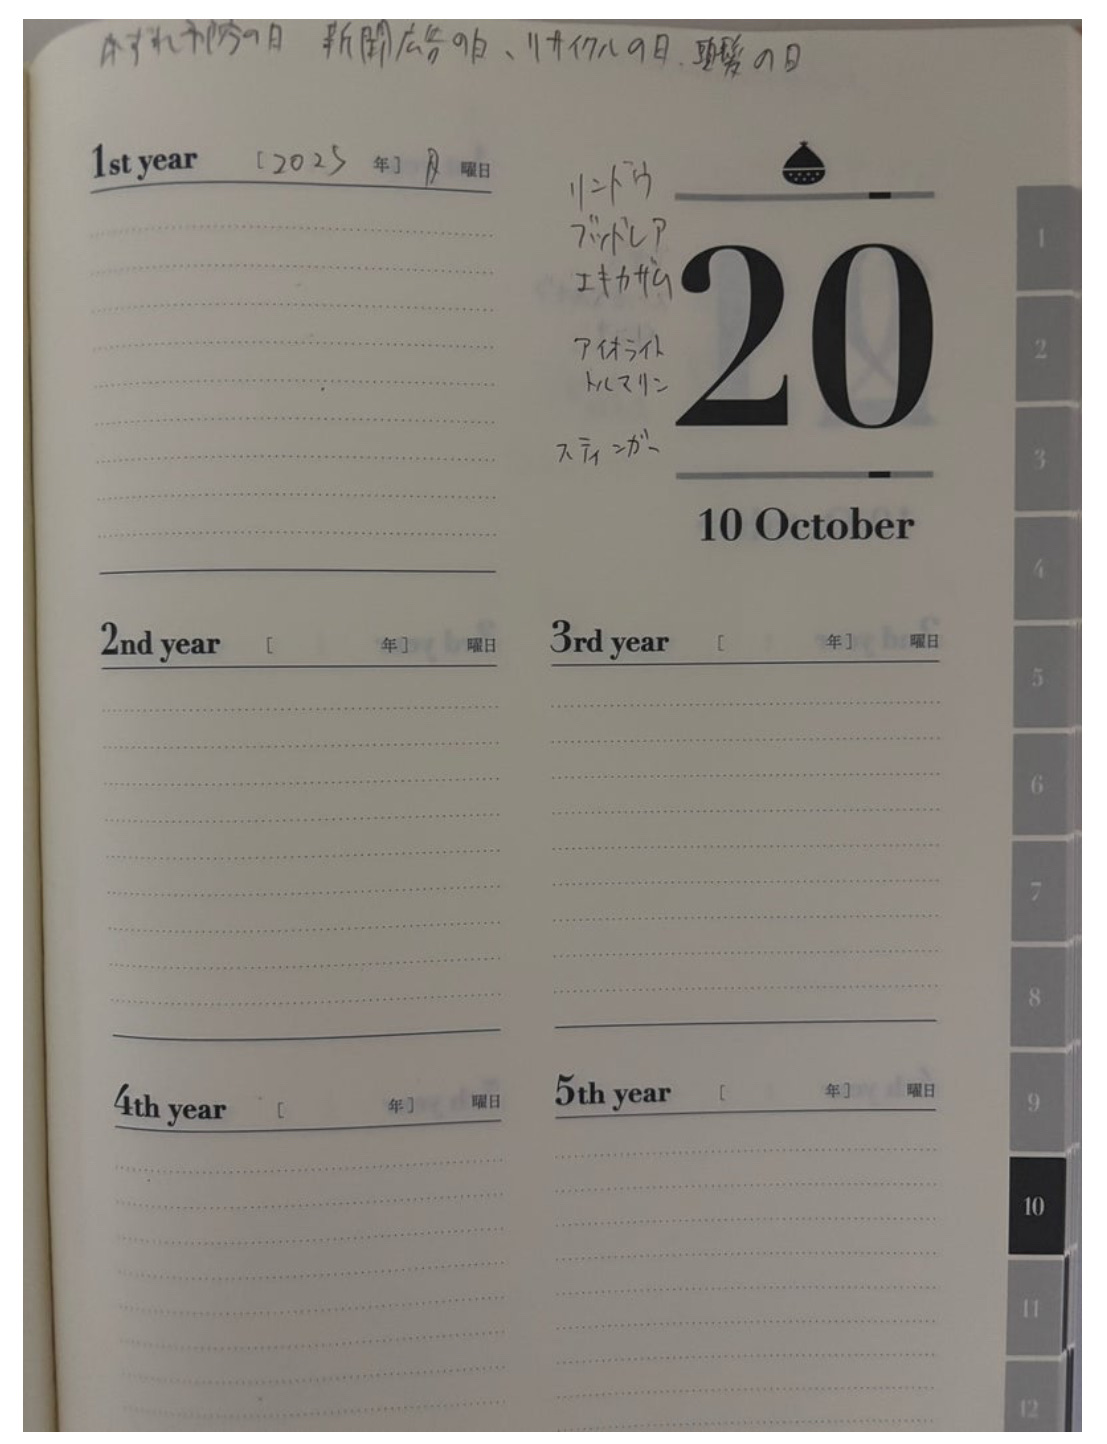 かずれ予防の日 新聞広告の日、リサイクルの日、頭髪の日
1st year [2025 年] 月 曜日
リンドウ
ブッドレア
エキザカム
アイオライト
トルマリン
スティンガー
20
10 October
2nd year [ 年] 曜日
3rd year [ 年] 曜日
4th year [ 年] 曜日
5th year [ 年] 曜日
1
2
3
4
5
6
7
8
9
10
11
12